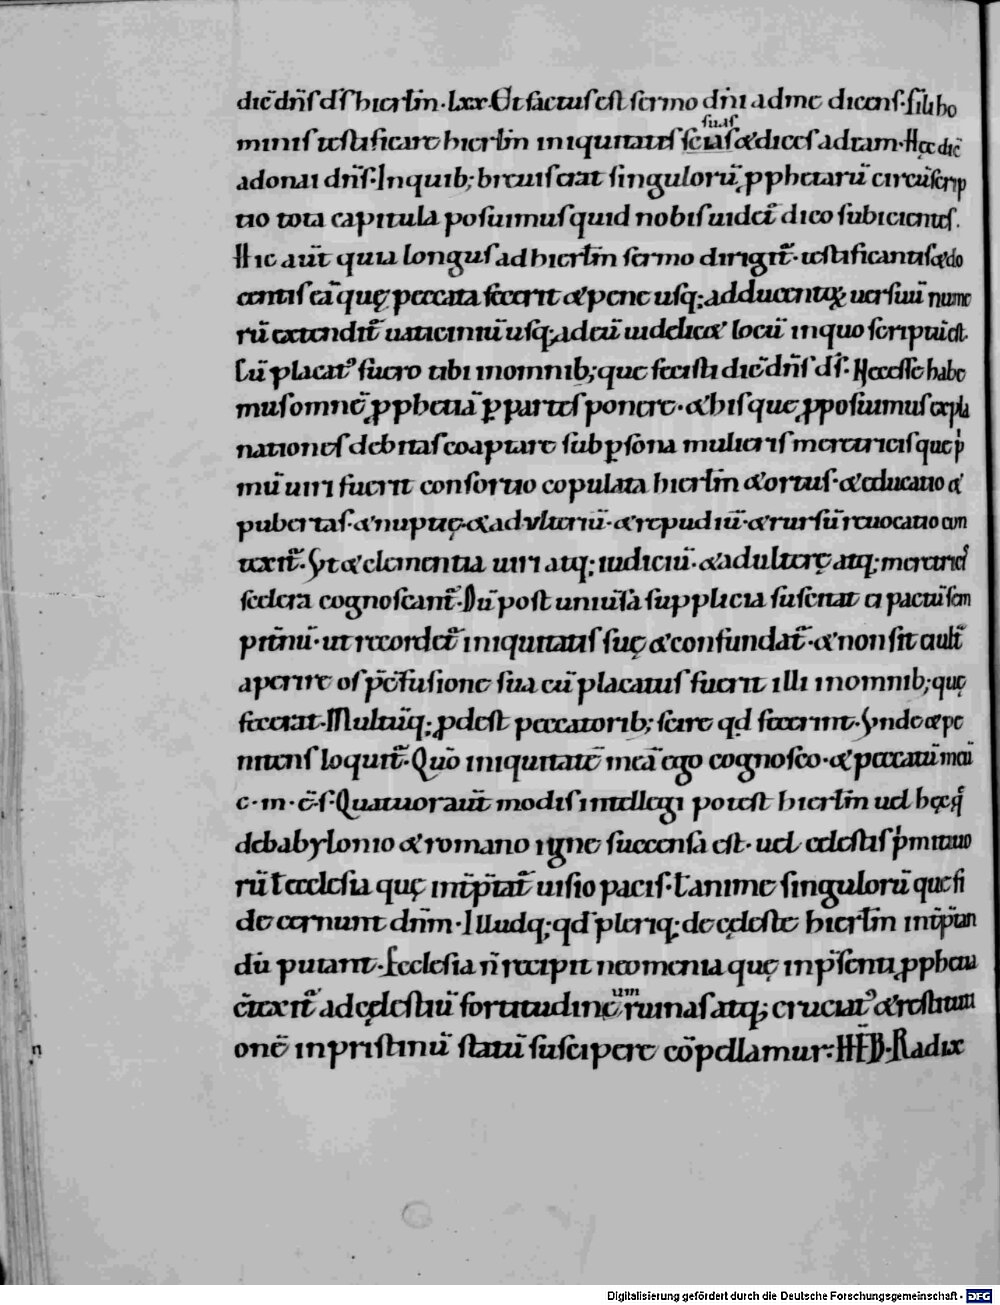 dic̄ dn̄s d̄s hierłm̄. Lxx. Et factus est sermo dn̄i ad me dicens. fili ho
minis testificare hierłm̄ iniquitates scias & dices ad eam. Hęc dic̄
suas
adonai dn̄s. In quib; breuis erat singulorū ꝓphetarū circūscrip
tio tota capitula posuimus quid nobis uidet̄ dico subicientes.
Hic aūt quia longus ad hierłm̄ sermo dirigit̄. testificantis & do
centis eā quę peccata fecerit & pene usq; ad ducentoꝝ uersuū nume
rū extendit̄ uaticiniū usq; ad eū uidelicet locū in quo scriptū est.
Cū placatꝰ fuero tibi in omnib; que fecisti dic̄ dn̄s d̄s. Necesse habe
mus omnē ꝓphetiā ꝑ partes ponere. & his que ꝓposuimus expla
nationes debitas coaptare sub ꝑsona mulieris meretricis que p̍
mū uiri fuerit consortio copulata hierłm̄ & ortus. & educatio &
pubertas. & nuptię. & adulteriū. & repudiū. & rursū reuocatio con
texit̄. Vt & clementia uiri atq; iudiciū. & adulterę atq; meretricis
scelera cognoscant̄. Dū post uniuersa supplicia suscitat ei pactū sem
pit̄nū. ut recordet̄ iniquitatis suę & confundat̄. & non sit ei ult̄
aperire os p̄ c̄fusione sua cū placatus fuerit illi in omnib; quę
fecerat. Multūq; ꝓdest peccatorib; scire qd̄ fecerint. Vnde & pe
nitens loquit̄. Qūo iniquitatē meā ego cognosco. & peccatū meū
c. m. ē. s. Quatuor aūt modis intellegi potest hierłm̄ uel hęc q̍
de babylonio & romano igne succensa est. uel cęlestis p̍mitiuo
rū ł ecclesia quę int̄p̄tat̄ uisio pacis. ł anime singulorū que fi
de cernunt dn̄m. Illudq; qd̄ pleriq; de cęleste hierłm̄ int̄p̄tan
dū putant. Ecclesia n̄ recipit ne omentia quę in p̄senti ꝓphetia
c̄texit̄ ad cęlestiū fortitudinē ruinas atq; cruciatꝰ & restituti
um
onē in pristinū statū suscipere cōpellamur: HIEȒ. Radix
n
Digitalisierung gefördert durch die Deutsche Forschungsgemeinschaft - DFG